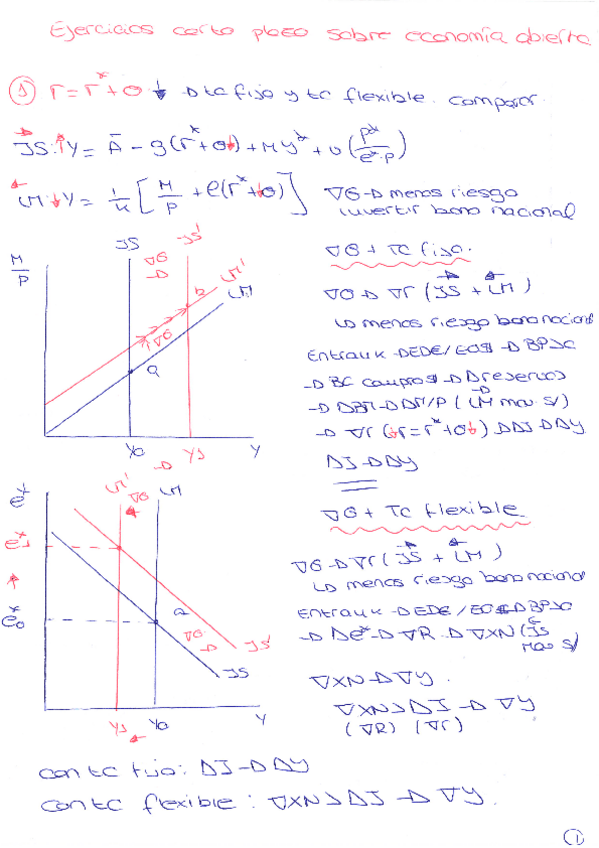 Ejercicios corto plazo sobre economía abierta
① r = r* + θ ↓ → tc fijo y tc flexible. comparar
IS: ↑Y = Ā - g(r* + θ↓) + my* + v(P*/e*·P)
LM: ↓Y = 1/k [M/P + l(r* + θ)]
∇θ → menos riesgo
invertir bono nacional
∇θ + TC fijo.
∇θ → ∇r (IS + LM)
↳ menos riesgo bono nacional
Entra k → EDE/EO$ → BP>0
→ BC compra $ → Δ reservas
→ ΔBM → ΔM/P (LM mov. s/)
→ ∇r (↓r = r* + θ↓), ΔI → ΔY
ΔI → ΔY
M/P
IS
IS'
∇θ
→
b
LM'
LM
∇θ
a
Y0
→
Y1
Y
∇θ + TC flexible
∇θ → ∇r (IS + LM)
↳ menos riesgo bono nacional
Entra k → EDE/EO$ → BP>0
→ Δe* → ∇R → ∇XN (IS
mov s/
∇XN → ∇Y.
∇XN > ΔI → ∇Y
(∇R) (∇r)
e*
LM'
∇θ
LM
e*1
e*0
a
∇θ
→
IS'
IS
Y1
Y0
Y
con tc fijo: ΔI → ΔY
con tc flexible: ∇XN > ΔI → ∇Y.
①